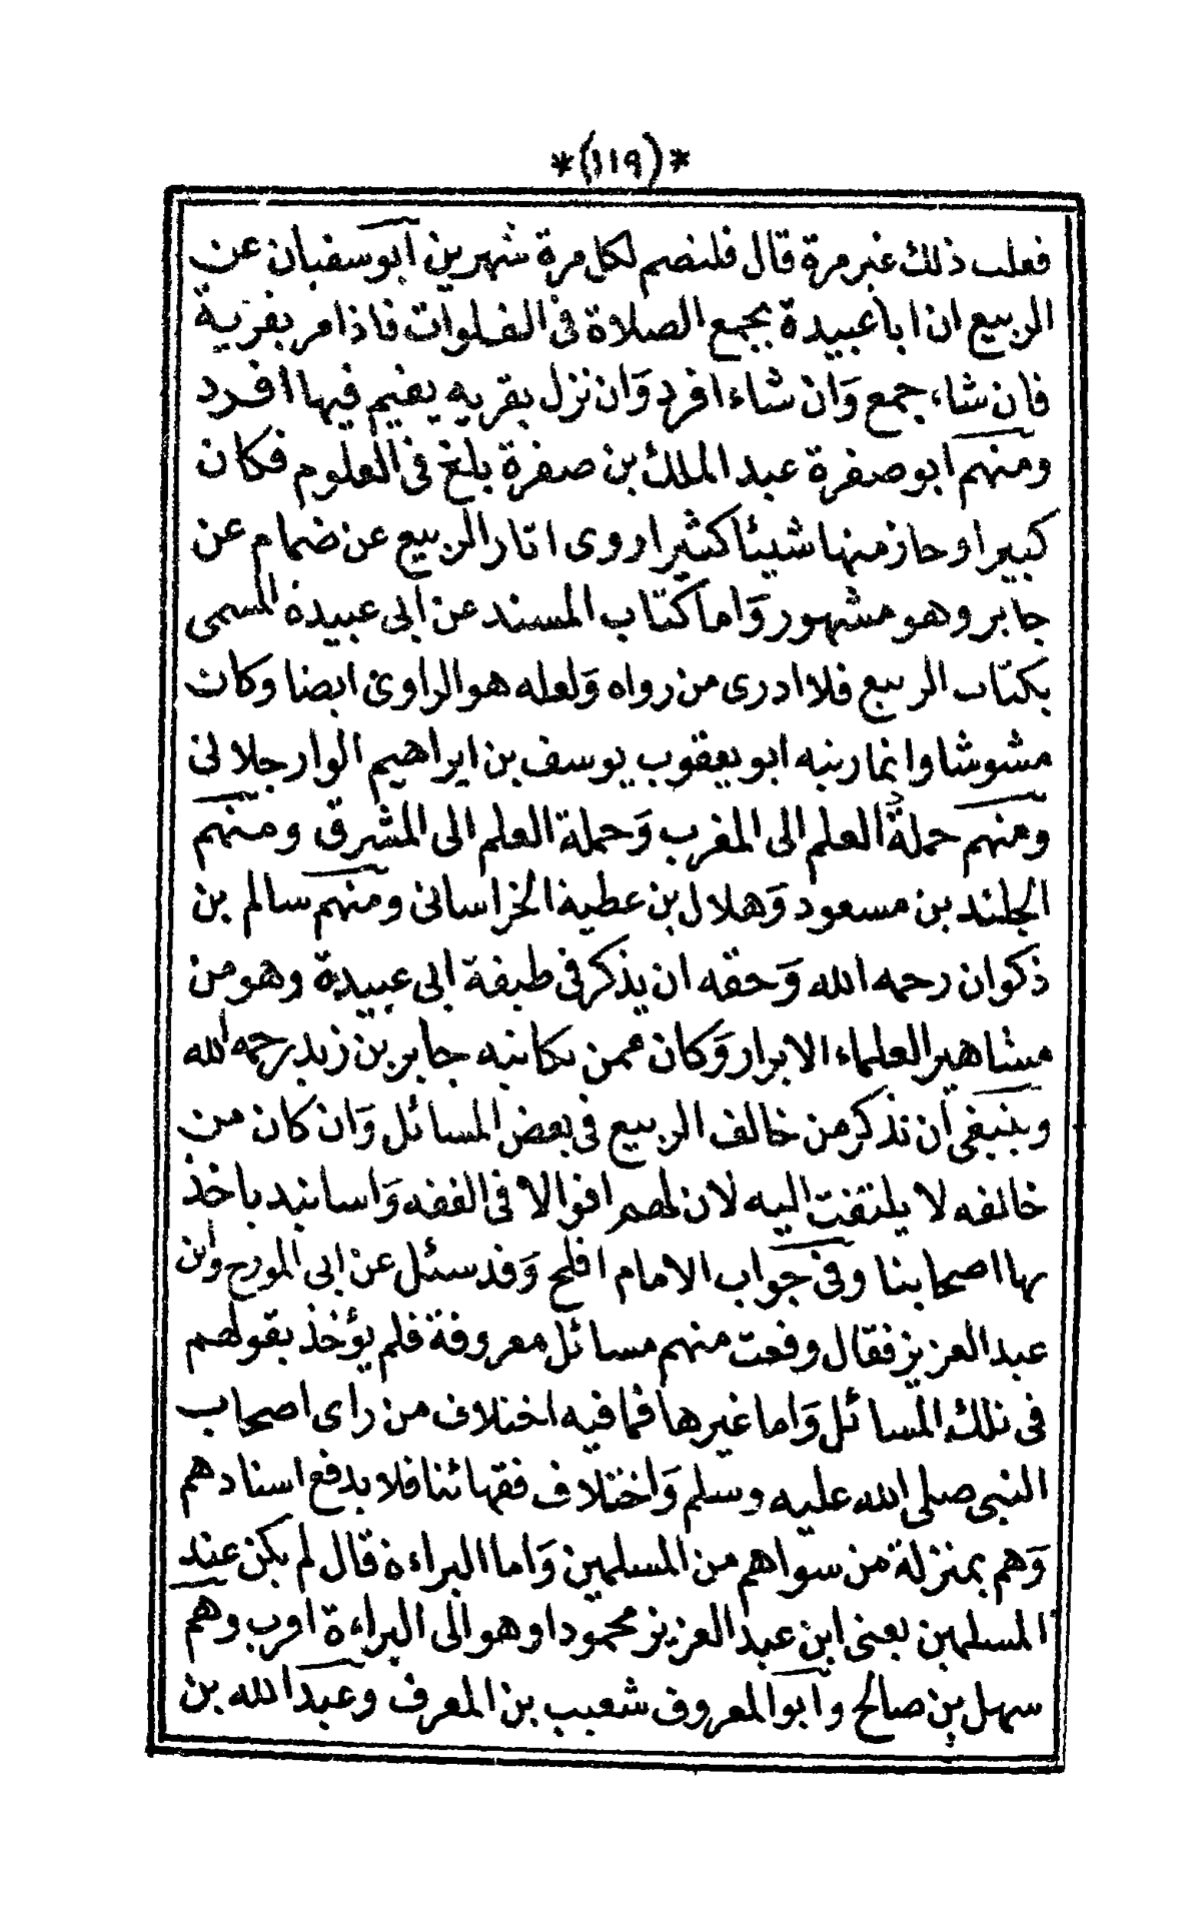 *(١١٩)*
فعلت ذلك غير مرة قال فلتصم لكل مرة شهرين ابو سفيان عن
الربيع ان ابا عبيدة يجمع الصلاة فى الفلوات فاذا مر بقرية
فان شاء جمع وان شاء افرد وان نزل بقريه يقيم فيها افرد
ومنهم ابو صفرة عبد الملك بن صفرة بلغ فى العلوم فكان
كبيرا وحاز منها شيئا كثيرا روى اثار الربيع عن ضمام عن
جابر وهو مشهور واما كتاب المسند عن ابى عبيدة المسمى
بكتاب الربيع فلا ادرى من رواه ولعله هو الراوى ايضا وكان
مشوشا وانما رتبه ابو يعقوب يوسف بن ابراهيم الوارجلانى
ومنهم حملة العلم الى المغرب وحملة العلم الى المشرق ومنهم
الجلند بن مسعود وهلال بن عطية الخراسانى ومنهم سالم بن
ذكوان رحمه الله وحقه ان يذكر فى طبقة ابى عبيدة وهو من
مشاهير العلماء الابرار وكان ممن يكاتبه جابر بن زيد رحمه الله
وينبغى ان نذكر من خالف الربيع فى بعض المسائل وان كان من
خالفه لا يلتفت اليه لان لهم اقوالا فى الفقه واسانيد ياخذ
بها اصحابنا وفى جواب الامام افلح وقد سئل عن ابى المورج وابن
عبد العزيز فقال وقعت منهم مسائل معروفة فلم يؤخذ بقولهم
فى تلك المسائل واما غيرها فما فيه اختلاف من راى اصحاب
النبى صلى الله عليه وسلم واختلاف فقهائنا فلا يدفع اسنادهم
وهم بمنزلة من سواهم من المسلمين واما البراءة قال لم يكن عند
المسلمين يعنى ابن عبد العزيز محمودا وهو الى البراءة اقرب وهم
سهل بن صالح وابو المعروف شعيب بن المعرف وعبد الله بن